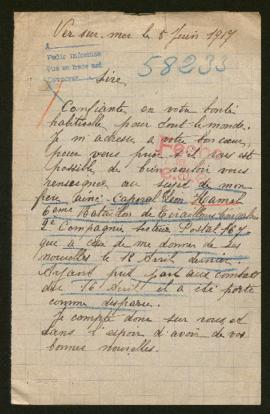 Ver sur mer le 5 Juin 1917
58233
Sire,
Confiante en votre bonté
habituelle pour tout le monde.
Je m'adresse à votre bon cœur,
pour vous prier s'il vous est
possible de bien vouloir vous
renseigner au sujet de mon
frère ainé. Caporal Léon Hamel
6eme Bataillon de Tirailleurs
2e Compagnie Secteur Postal 167
que à cessé de me donner de ses
nouvelles le 12 Avril dernier.
Ayant prit part aux combats
du 16 Avril il a été porté
comme disparu.
Je compte donc sur vous et
dans l'espoir d'avoir de vos
bonnes nouvelles.